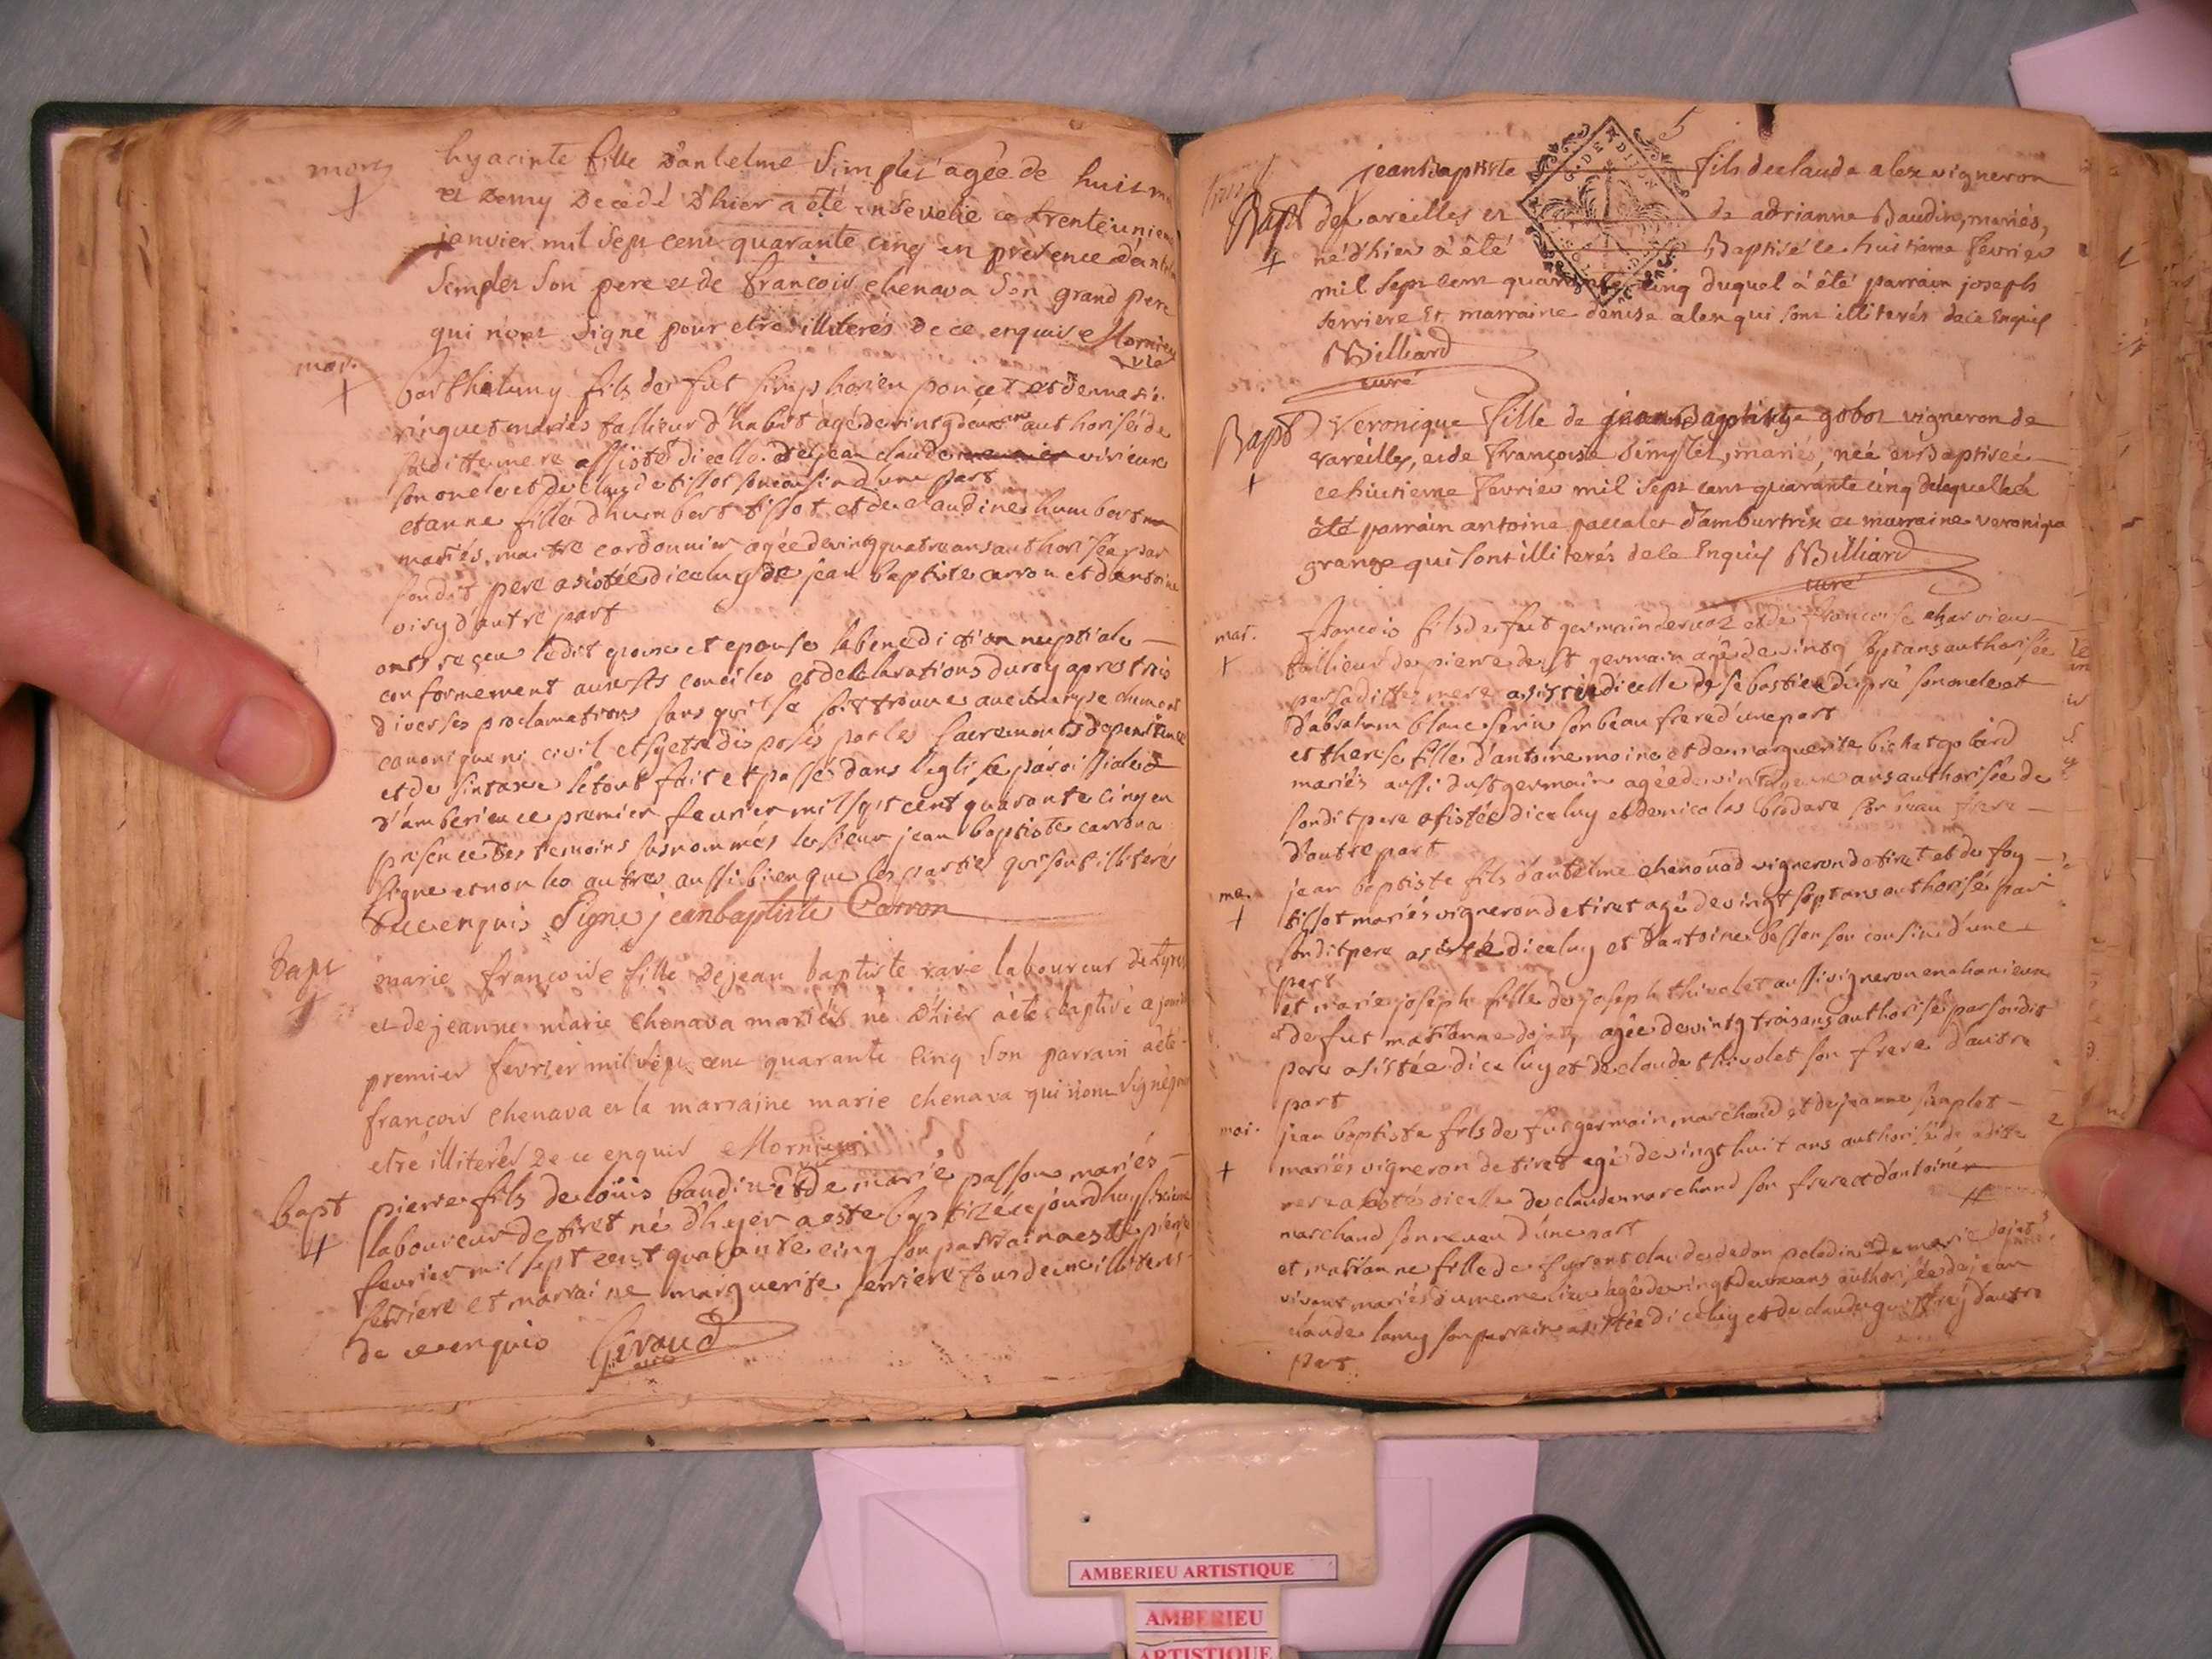 mort
hyacinte fille D'antelme Simplet agée de huit
et Demy Decedé D'hier a été ensevelie ce trenteunieme
janvier mil sept cent quarante cinq en presence
Simplet son pere et de françois chenava son grand pere
qui n'ont signé pour etre illiterés de ce enquis Mornieu
mar.
barthelemy fils de fut simphorien poncet et
mariés tallieur d'habit agé de authorisé de
sa ditte mere assisté dicelle de jean claude
son oncle et de claude tissot son cousin d'une part
et anne fille d'humbert tissot et de claudine humbert
mariés, maitre cordonnier, agée de vingt quatre ans authorisée par
son dit pere asistée diceluy de jean baptiste carron et d'antoine
d'autre part
ont reçeu ledit epouse la benediction nuptiale
conformement aux sts conciles et declarations du roy apres trois
diverses proclamations sans qu'il se soit trouvé
canonique ni civil et s'y etre disposés par les sacrements de penitence
et de le tout fait et passé dans l'eglise paroissiale
d'amberieu ce premier fevrier mil sept cent quarante cinq en
presence des temoins susnommés le sieur jean baptiste carron a
signé et non les autres aussi bien que les parties qui sont illiterés
de ce enquis Signe jeanbaptiste Carron
bapt
marie françoise fille de jean baptiste ravé laboureur de tyret
et de jeanne marie chenava mariés né D'hier a été baptisé
premier fevrier mil sept cent quarante cinq son parrain a été
françois chenava et la marraine marie chenava qui n'ont signé
etre illiterés De ce enquis Mornieu
bapt
pierre fils de loüis baudin et de marie passon mariés
laboureur de tiret né d'hyer a esté baptizé ce jourd'huy
fevrier mil sept cent quarante cinq son parrain a esté pierre
serriere et marraine marguerite serriere tous deux illiterés
de ce enquis Giraud
5
Bapt
jean Baptiste fils de claude alex vigneron
de vareilles et de adrianne Baudin, mariés,
né d'hier à été Baptisé le huitieme fevrier
mil sept cent quarante cinq duquel à été parrain joseph
serriere Et marraine denise alex qui sont illiterés de ce Enquis
Billiard
curé
Bapt
Veronique Fille de jean Baptiste gobet vigneron de
vareilles, et de Françoise Simplet, mariés, née et Baptisée
ce huitieme Fevrier mil sept cent quarante cinq de laquelle à
été parrain antoine pascalet d'amburtrix et marraine veronique
grange qui sont illiterés de ce Enquis Billiard
curé
mar.
francois fils de fut germain et de francoise charvieu
tallieur de pierre de st germain agé de vintg sept ans authorisé
par sa ditte mere asisté dicelle de sebastien dupré son oncle et
d'abraham blanc son beau frere d'une part
et therese fille d'antoine moine et de marguerite
mariés aussi du st germain agée de ans authorisée de
son dit pere asistée diceluy et de nicolas son beau frere
d'autre part
mar.
jean baptiste fils d'antelme chenavad vigneron de tiret et de
tissot mariés vigneron de tiret agé de vingt sept ans authorisé par
son dit pere asisté diceluy et d'antoine besson son cousin d'une
part
et marie joseph fille de joseph thivolet aussi vigneron
et de fut marianne agée de vintg trois ans authorisé par son dit
pere asistée diceluy et de claude thivolet son frere d'autre
part
mar.
jean baptiste fils de fut germain marchand et de jeanne
mariés vigneron de tiret agé de vingt huit ans authorisé de sa ditte
mere asisté dicelle de claude marchand son frere et d'antoine
marchand son neveu d'une part
et marianne fille de furent claude dedon et de marie
vivant mariés du meme lieu agée de vingt deux ans authorisée de jean
claude lamy son parrain asistée diceluy et de claude d'autre
part
AMBERIEU ARTISTIQUE
AMBERIEU
ARTISTIQUE